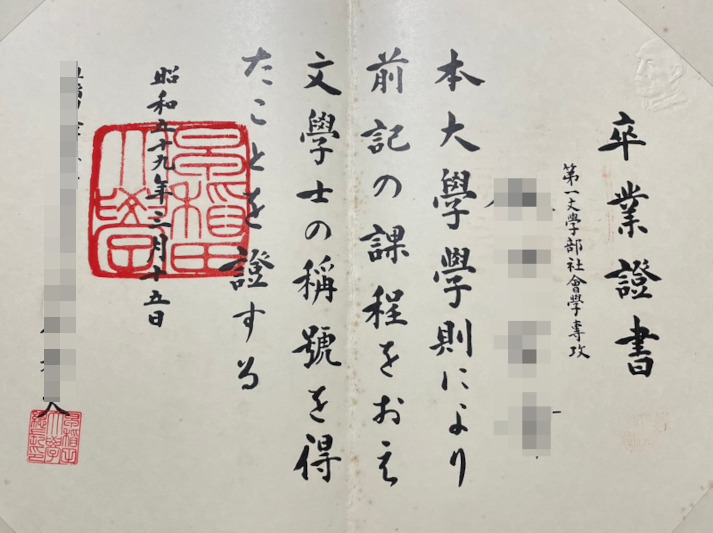 卒業證書
第一文學部社會學專攻
本大學學則により
前記の課程をおえ
文學士の稱號を得
たことを證する
昭和五十九年三月十五日
早稲田大學